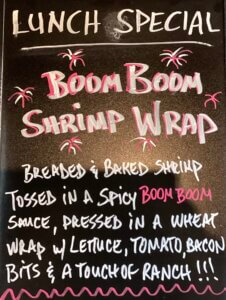 LUNCH SPECIAL
BOOM BOOM
SHRIMP WRAP
BREADED & BAKED SHRIMP
TOSSED IN A SPICY BOOM BOOM
SAUCE, PRESSED IN A WHEAT
WRAP w/ LETTUCE, TOMATO, BACON
BITS & A TOUCH OF RANCH!!!